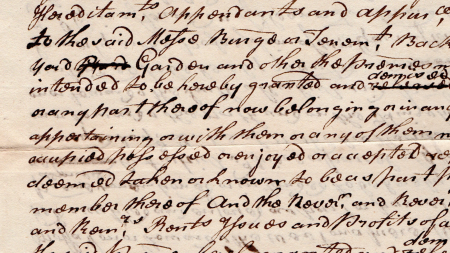 Hereditamts. Appendants and appurces
to the said Messe Burge or Tenemt. Back
yard Garden and other the Premies
intended to be hereby granted and demised
or any part thereof now belonging or in any
appertaining or with them or any of them
occupied possessed or enjoyed or accepted
deemed taken or known to be as part
member thereof And the Rever. and Rever
and Remrs. Rents Yssues and Profits of a